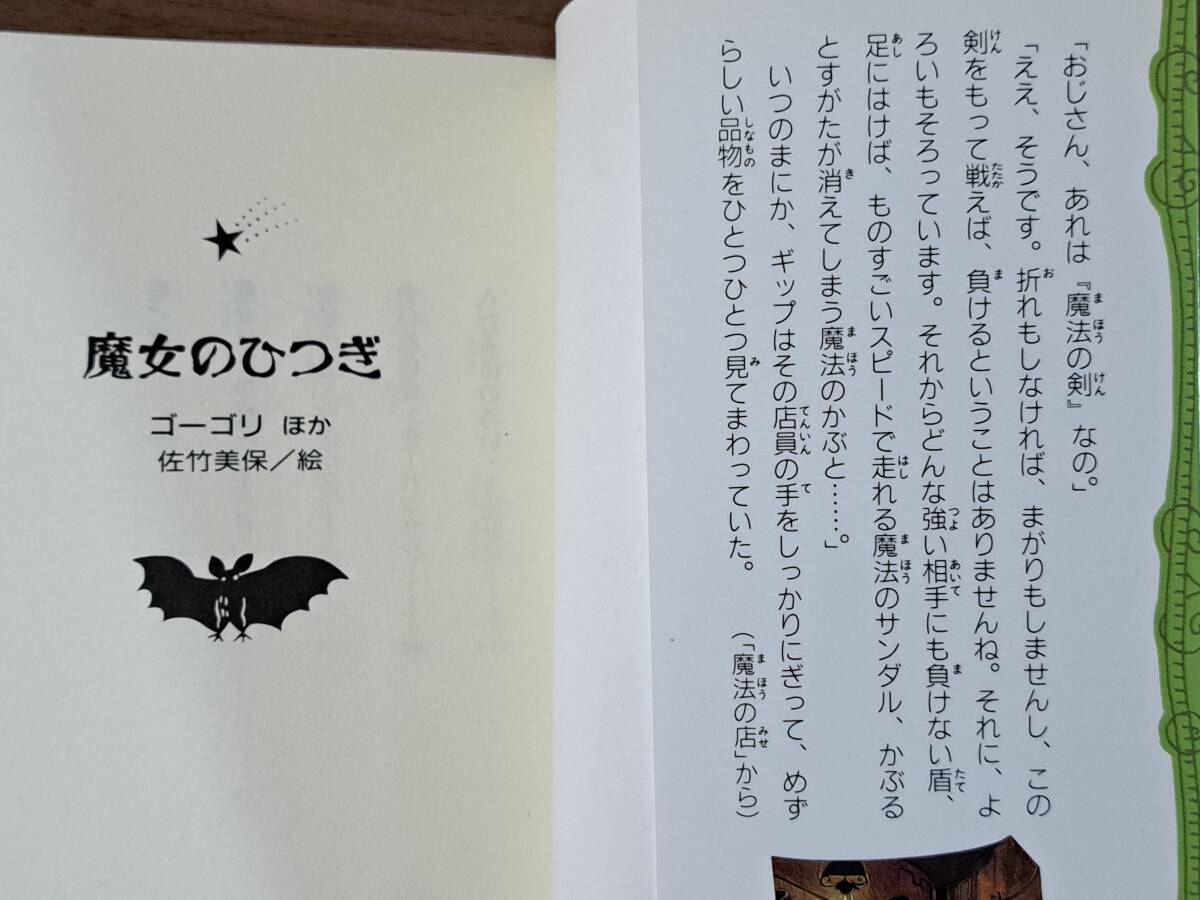 「おじさん、あれは『魔法の剣』なの。」
「ええ、そうです。折れもしなければ、まがりもしませんし、この
剣をもって戦えば、負けるということはありませんね。それに、よ
ろいもそろっています。それからどんな強い相手にも負けない盾、
足にはけば、ものすごいスピードで走れる魔法のサンダル、かぶる
とすがたが消えてしまう魔法のかぶと……。」
いつのまにか、ギップはその店員の手をしっかりにぎって、めず
らしい品物をひとつひとつ見てまわっていた。　（「魔法の店」から）
魔女のひつぎ
ゴーゴリ ほか
佐竹美保／絵